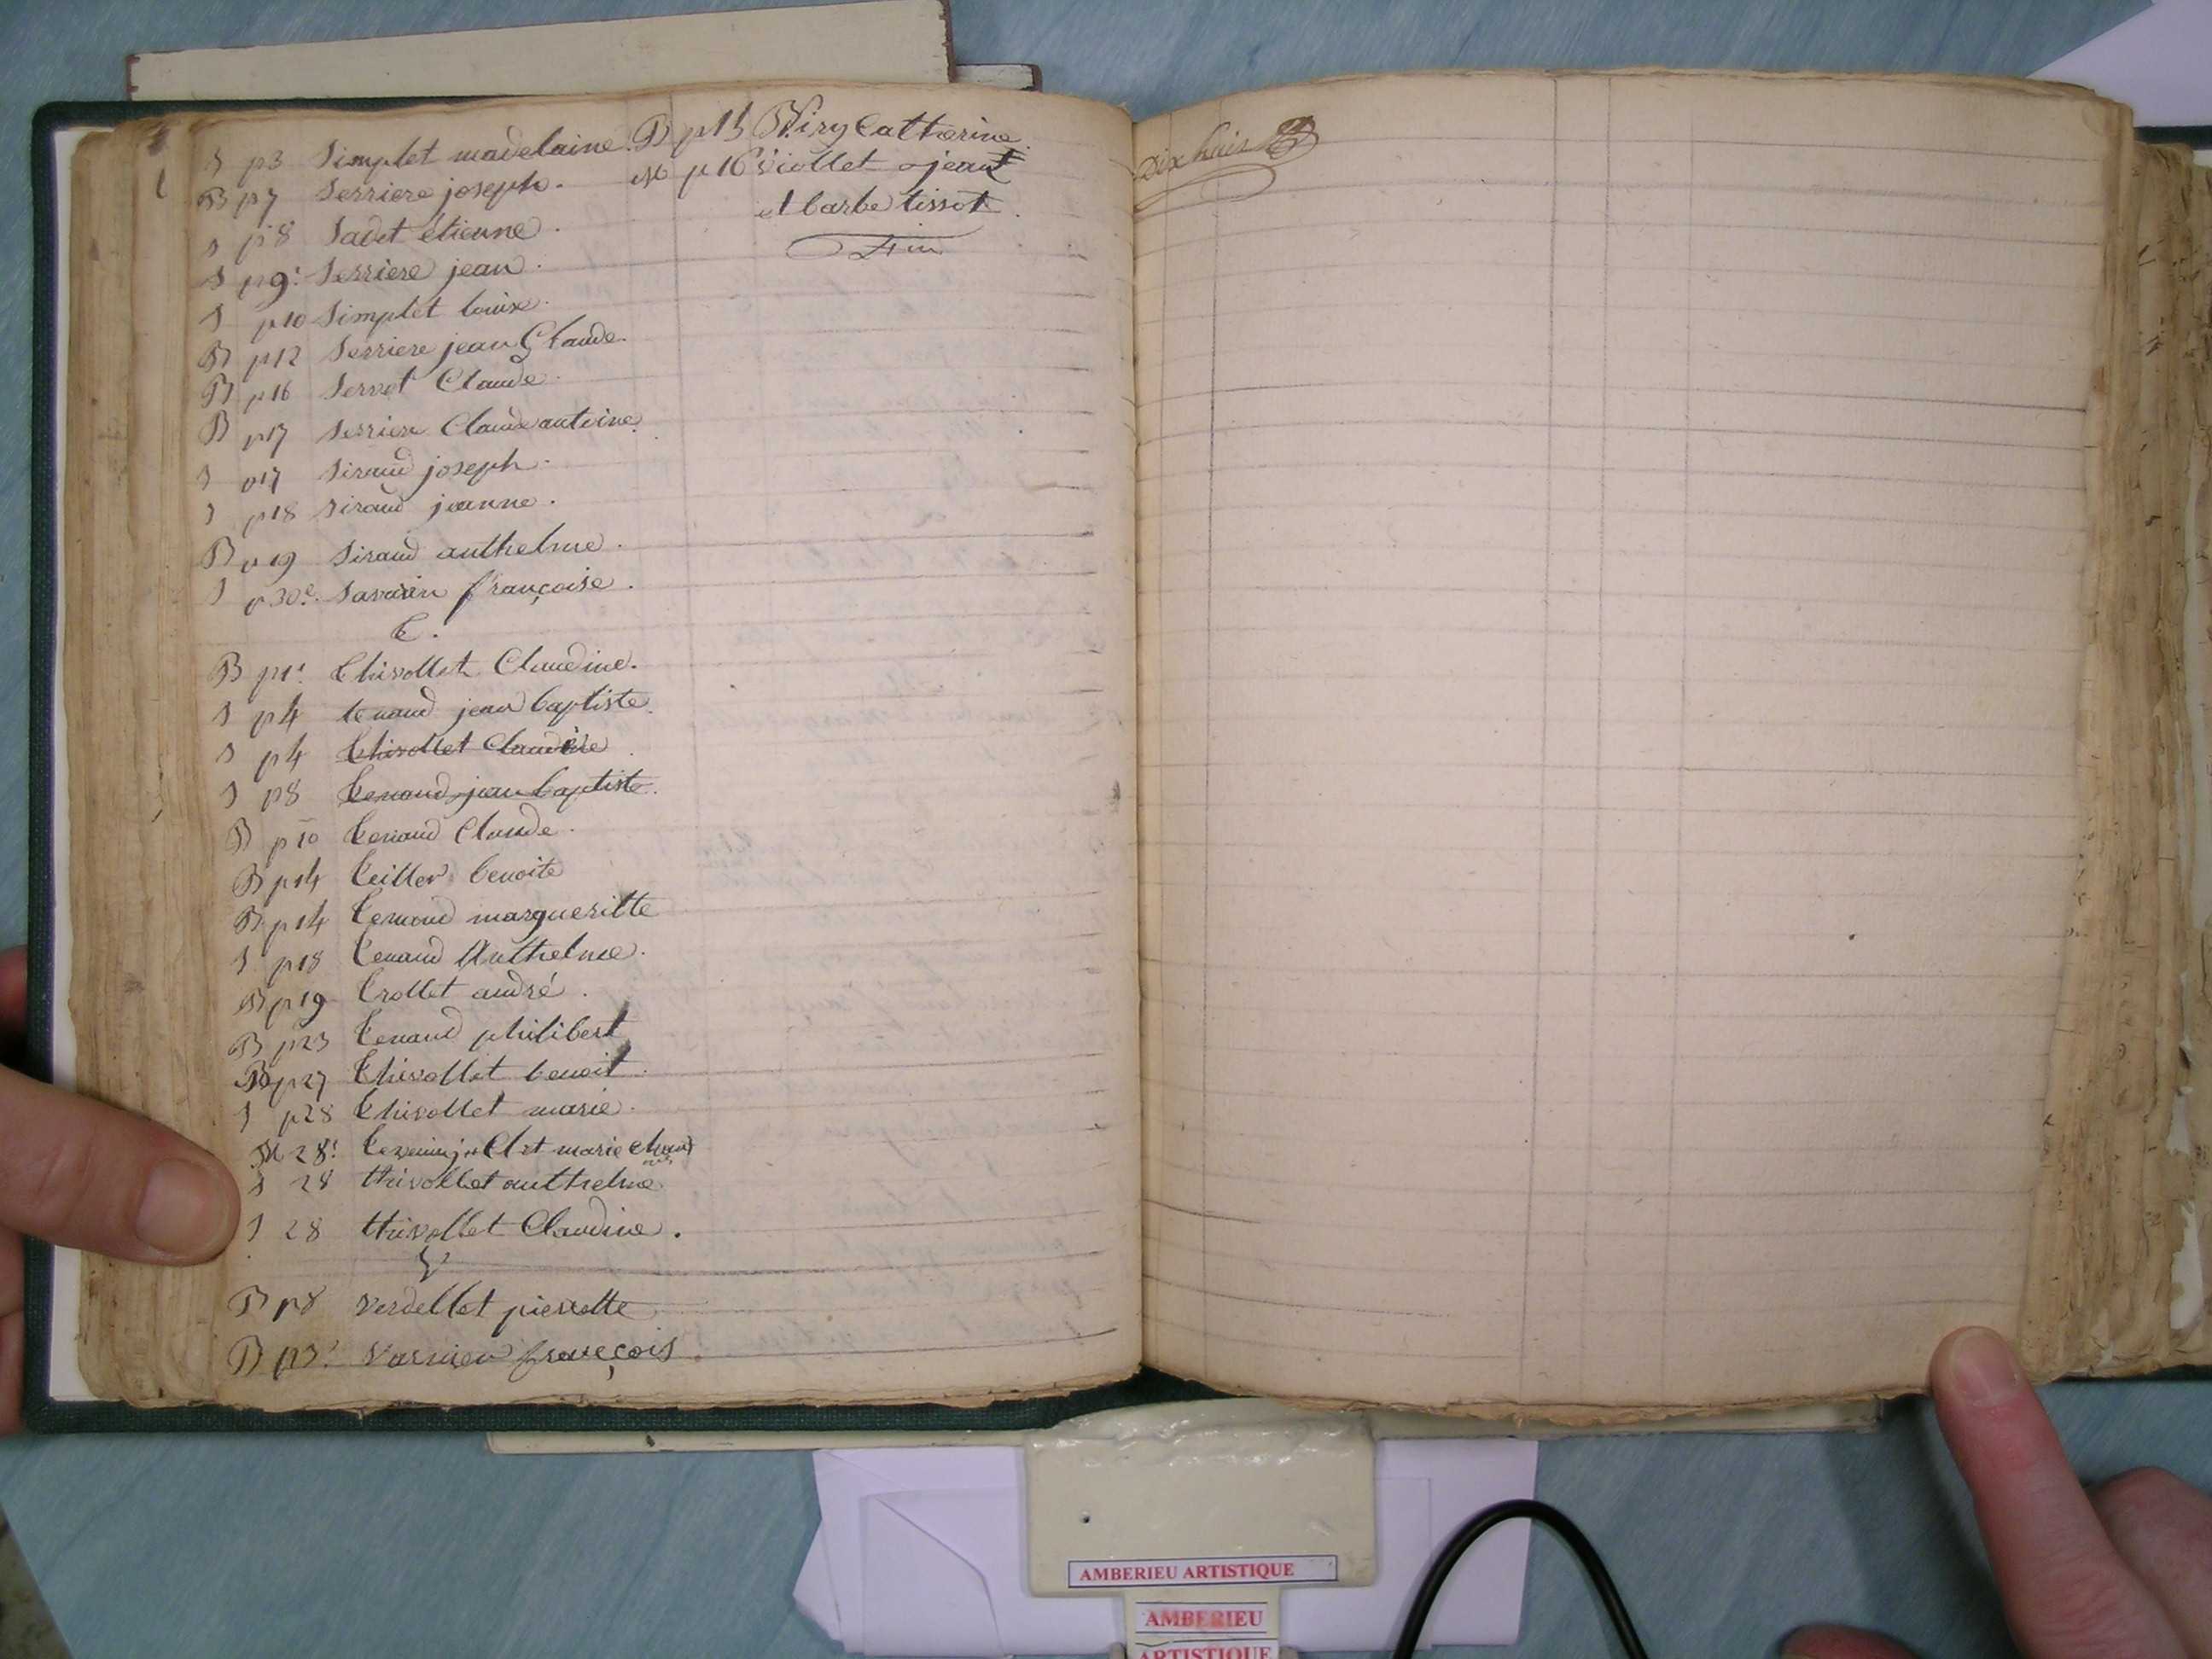 S p3 Simplet madelaine.
B p7 Serriere joseph.
S p8 Sadet étienne.
S p9. Serriere jean.
S p10 Simplet louise.
B p12 Serriere jean Claude.
B p16 Servet Claude.
B p17 Serriere Claude antoine.
S p17 Siraud joseph.
S p18 Siraud jeanne.
B p19 Siraud anthelme.
S p30e. Savarin françoise.
T.
B p1. Thivollet Claudine.
S p4 tenand jean baptiste.
S p4 Thivollet Claudine
S p8 Tenand jean baptiste.
B p10 Tenand Claude.
B p14 benoite
B p14 Tenand margueritte
S p18 Tenand Anthelme.
B p19 Trollet andré.
B p23 Tenand philibert
B p27 Thivollet benoit.
S p28 Thivollet marie.
M 28. et marie
S 28 thivollet anthelme
S 28 thivollet Claudine.
V
B p8 verdellet pierrette
B p13. varnier françois
B p15 Viry Catherine.
M p16 viollet jean
et barbe tissot.
Fin
Dix huit
AMBERIEU ARTISTIQUE
AMBERIEU
ARTISTIQUE